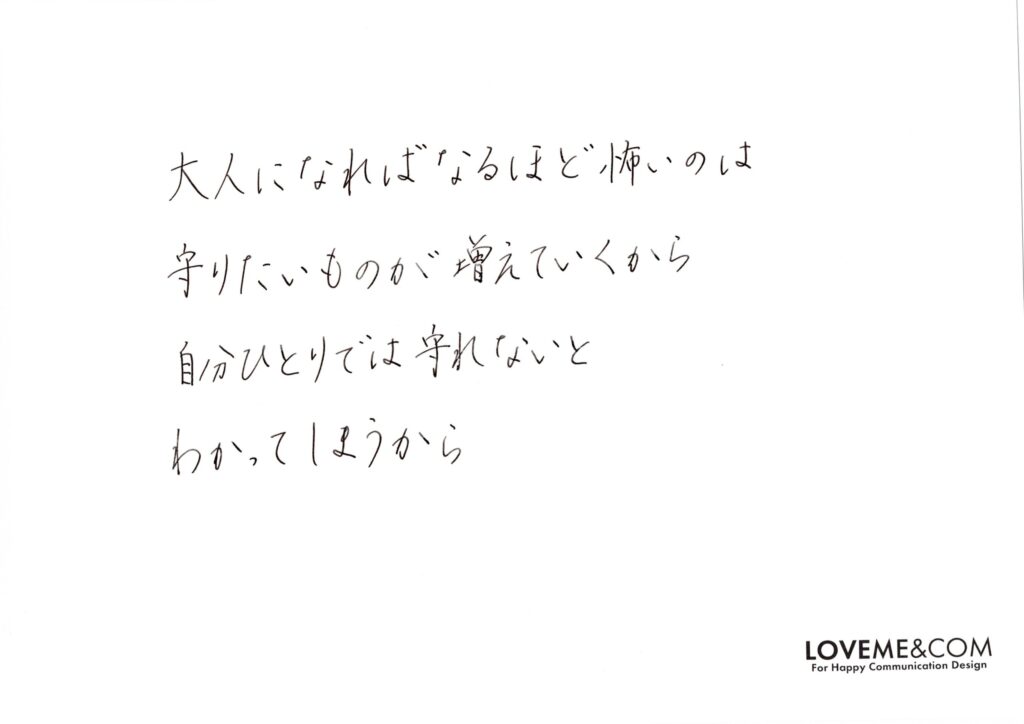 大人になればなるほど怖いのは
守りたいものが増えていくから
自分ひとりでは守れないと
わかってしまうから
LOVEME&COM
For Happy Communication Design